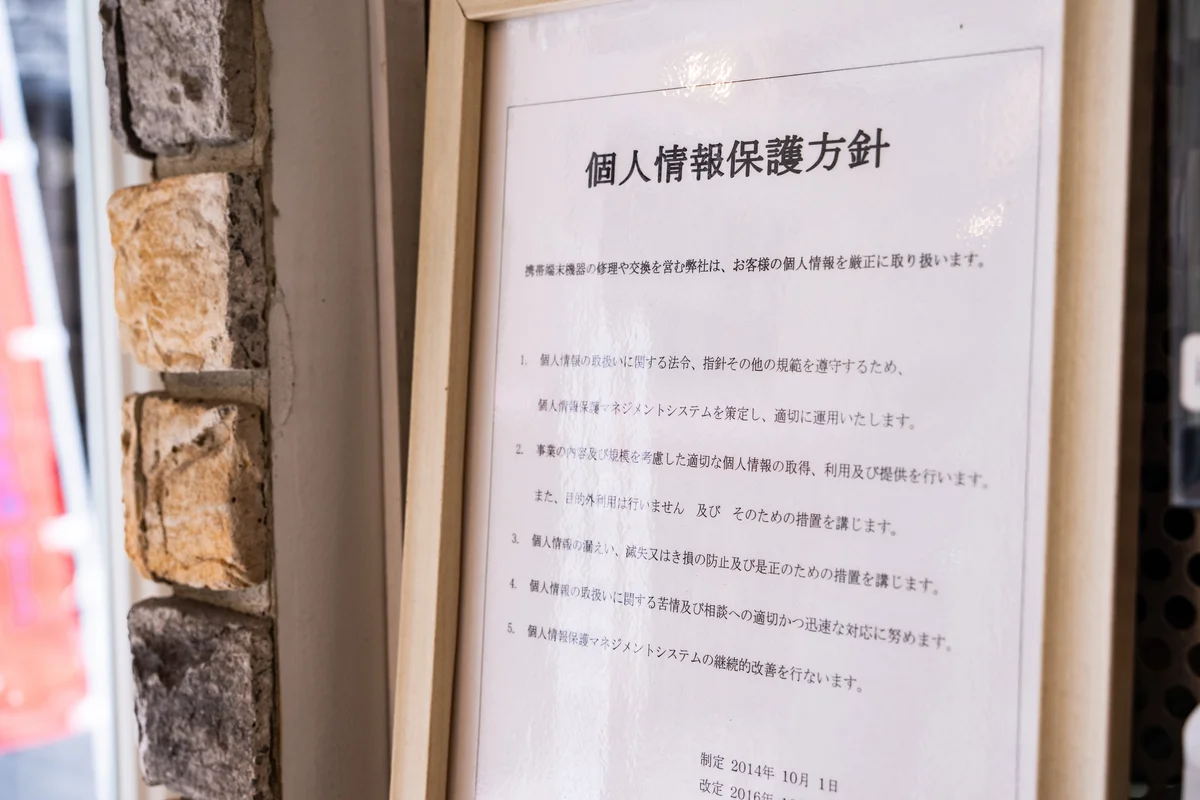 個人情報保護方針
携帯端末機器の修理や交換を営む弊社は、お客様の個人情報を厳正に取り扱います。
1. 個人情報の取扱いに関する法令、指針その他の規範を遵守するため、
個人情報保護マネジメントシステムを策定し、適切に運用いたします。
2. 事業の内容及び規模を考慮した適切な個人情報の取得、利用及び提供を行います。
また、目的外利用は行いません 及び そのための措置を講じます。
3. 個人情報の漏えい、滅失又はき損の防止及び是正のための措置を講じます。
4. 個人情報の取扱いに関する苦情及び相談への適切かつ迅速な対応に努めます。
5. 個人情報保護マネジメントシステムの継続的改善を行ないます。
制定 2014年 10月 1日
改定 2016年